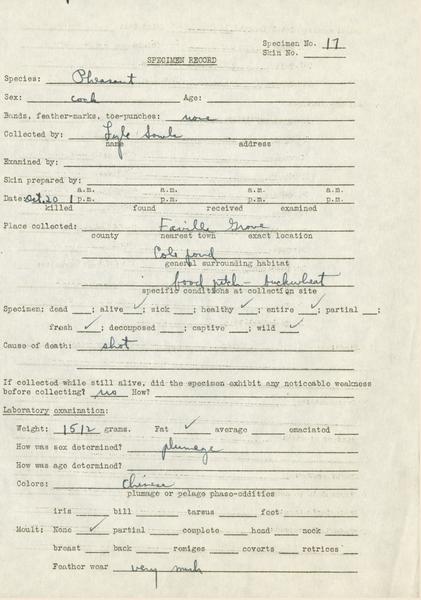 Specimen No. 17
Skin No.
SPECIMEN RECORD
Species: Pheasant
Sex: cock Age:
Bands, feather-marks, toe-punches: none
Collected by: Lyle Sowls
name address
Examined by:
Skin prepared by:
a.m. a.m. a.m. a.m.
Date: Oct. 20 1 p.m. p.m. p.m. p.m.
killed found received examined
Place collected: Faville Grove
county nearest town exact location
Cole pond
general surrounding habitat
food patch - buckwheat
specific conditions at collection site
Specimen; dead ; alive ✓; sick ; healthy ✓; entire ✓; partial ;
fresh ✓; decomposed ; captive ; wild ✓
Cause of death: shot
If collected while still alive, did the specimen exhibit any noticeable weakness
before collecting? no How?
Laboratory examination:
Weight: 1512 grams. Fat ✓ average emaciated
How was sex determined? plumage
How was age determined?
Colors: Chinese
plumage or pelage phase-oddities
iris bill tarsus feet
Moult: None ✓ partial complete head neck
breast back remiges coverts retrices
Feather wear very much